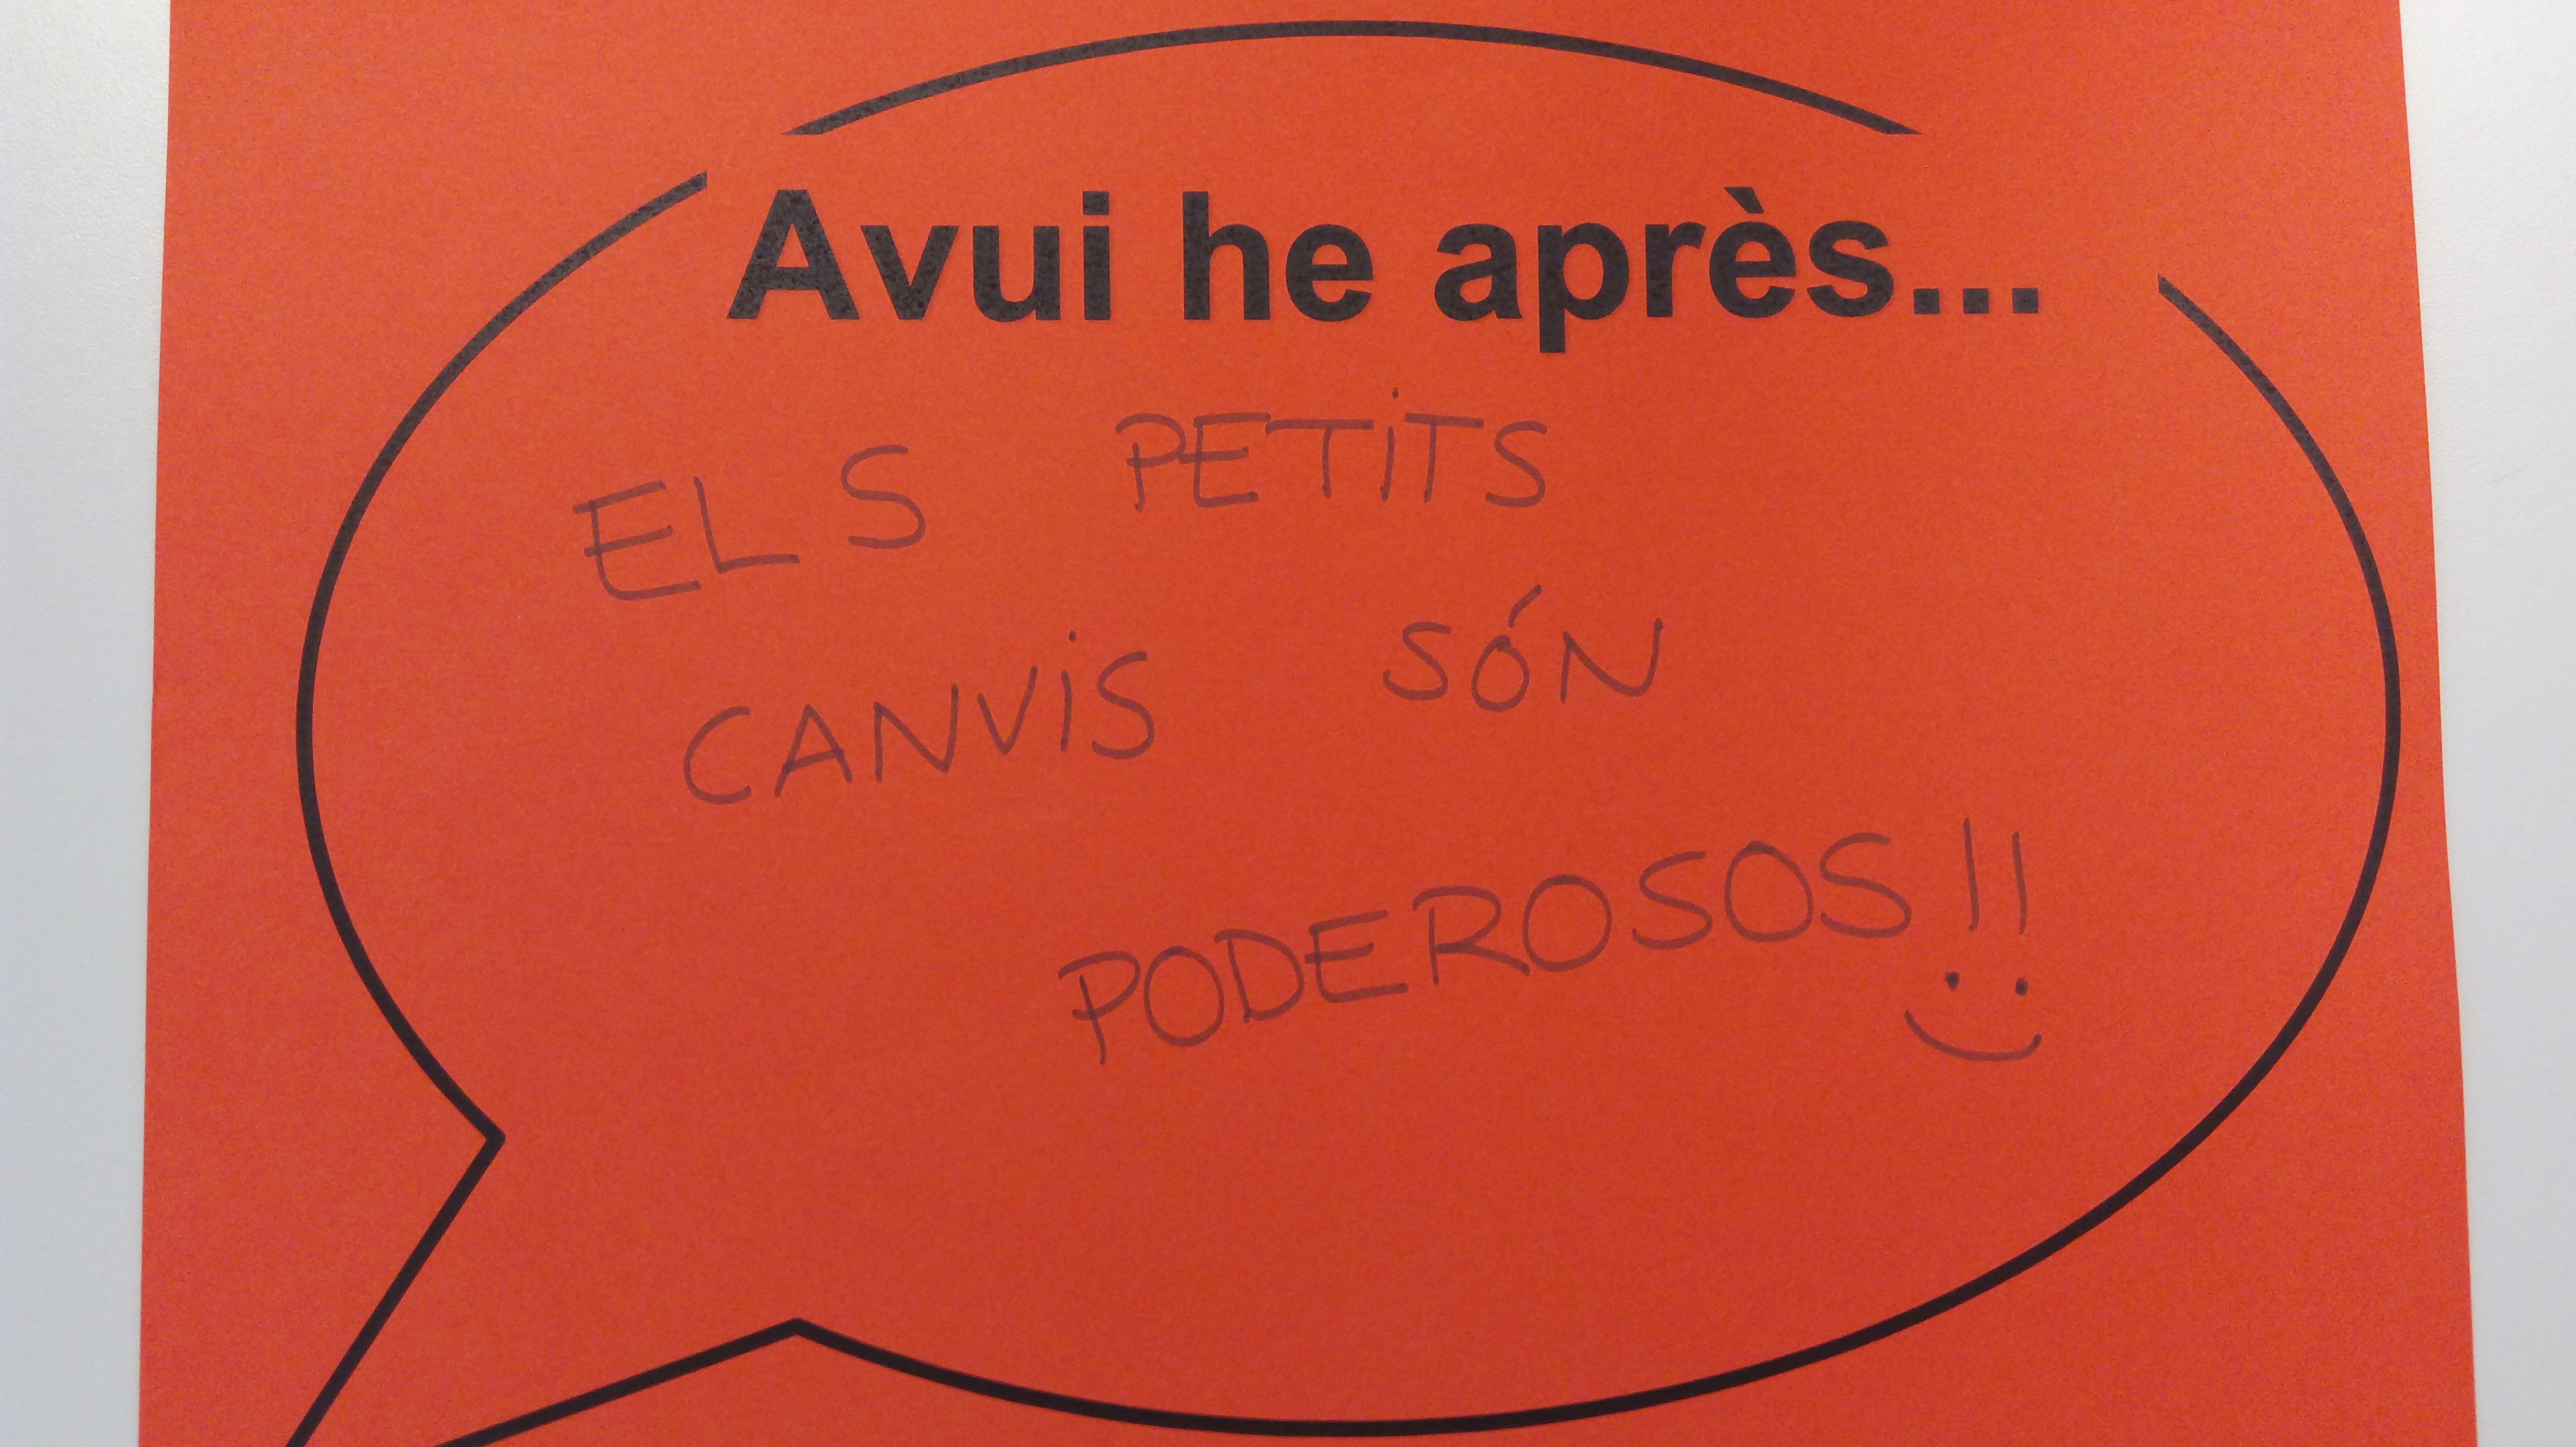 Avui he après...
ELS PETITS
CANVIS SÓN
PODEROSOS!!